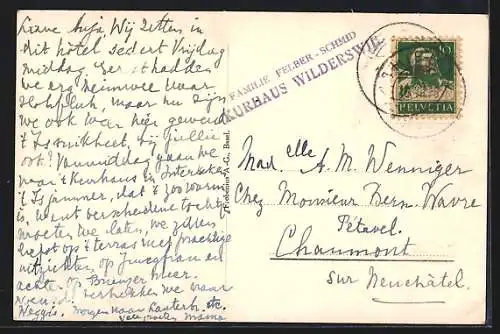 Lieve Anja, Wij zitten in
dit hotel sedert Vrijdag
middag Eerst hadden
we erg heimwee naar
maar nu zijn
we ook war hier gewend
't Is snikheet, bij jullie
ook? Vanmiddag gaan we
naar 't Kurhaus in Interlaken
't Is jammer, dat 't zoo warm
is, want verscheidene tochtjes
moeten we laten, we zitten
liefst op 't terras met prachtige
uitzichten op Jungfrau en
achter op Brienzer meer.
vertrekken we naar
Weggis. Morgen naar Lauterbr. etc.
Vele groeten Mama
FAMILIE FELBER-SCHMID
KURHAUS WILDERSWIL
A.-G., Basel.
10
HELVETIA
Mad.elle A. M. Wenniger
Chez Monsieur Bern. Wavre
Pétavel.
Chaumont
sur Neuchâtel.